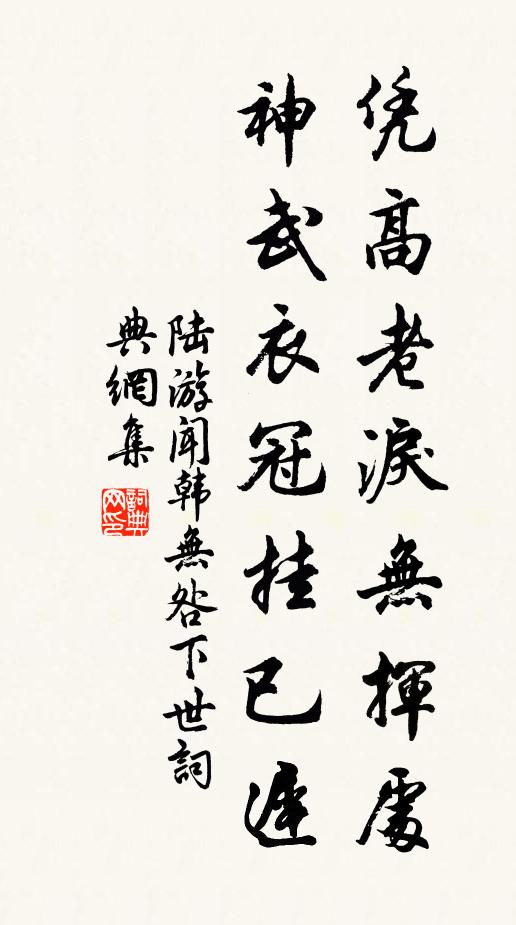 凭高老淚無揮處
神武衣冠挂已遲
陆游闻韩無咎下世詞
典網集
詞典网印